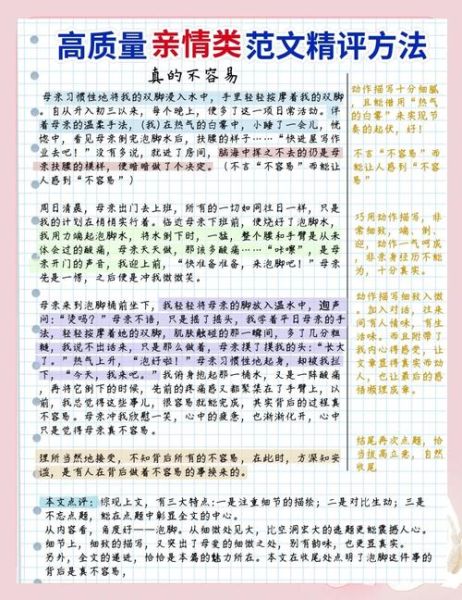 高质量亲情类范文精评方法
真的不容易
母亲习惯性地将我的双脚浸入水中，手里轻轻按摩着我的双脚
。自从升入初三以来，每个晚上，便多了这一项日常活动。伴
着母亲的温柔手法，(我)在热气的白雾中，小睡了一会儿，恍
惚中，看见母亲倒完泡脚水后，扶腰的样子……“快进屋写作
业去吧！”没有多说，就进了房间，脑海中挥之不去的仍是母
亲扶腰的模样，便暗暗做了个决定。（不言“不容易”而能让
人感到“不容易”）
周日清晨，母亲出门去上班，所有的一切如同往日一样，只是
我的计划在悄悄实行着。临近母亲下班前，便烧好了泡脚水，
我用力端起泡脚水，将水倒下时，一嗑，整个腰和手臂是从未
体会过的酸痛，母亲天天做，那该多酸痛……“咔嚓”，是母
亲开门的声音，我迎上前，“快准备准备，来泡脚吧！”母亲
先是一愣，之后便是冲我微微笑。
母亲来到泡脚桶前坐下，我轻轻将母亲的脚放入温水中，迴声
问：“烫吗？”母亲不语，只是摇了摇头，我学着平日母亲的手
法，轻轻按摩着她的双脚，肌肤触碰的那一瞬间，多了几分粗
糙，我说不出话来，只是那么做着，母亲摸了摸我的头：“长大
了。”热气上升，“泡好啦！”母亲习惯性地起身，却被我拦
下，“今天，我来吧。”我俯身抱起那一桶水，又是一阵酸痛
，再将它倒下的时候，先前的疼痛感又都聚集在了手臂上，以
前，我总觉得这些事儿，很容易就能完成，其实背后的过程真
不容易。母亲冲我欣慰一笑，心中的疲惫，也渐渐化开，心中
只是觉得母亲真不容易。
理所当然地接受，不知背后所有的不容易，在此时，方深知安
谧，是有人在背后做着不容易的事换来的。
本文点评：综观上文，有三大特点:一是注重细节的描绘；二是对比生动；三是
不忘点题，能在点题中彰显全文的中心。
从内容看，角度好——泡脚。从细微处见大，比空洞宏大的选题更能震撼人心。
细节上，细致的描写，又突出了母爱的细微之处，别有韵味，也更显真实。
另外，全文的递进，恰恰是本篇的魅力所在。本文在收尾处点明了泡脚这件事的
背后是真不容易，
动作描写十分细腻
，且能借用“热气
的白雾”来实现节
奏的起伏，好！
不言“不容易”而
能让人感到“不容
易”
巧用动作描写，非
常细致，端、倒、
迎，动作一气呵成
，非亲身经历不能
为，十分真实。
动作描写细致入微
。加入对话，往来
间有人情味，有生
活味。而且附带了
我内心得感受，让
文章显得真实而动
人，也让最后的感
悟顺理成章。
结尾再次点题，恰
当拔高立意，自然
收尾